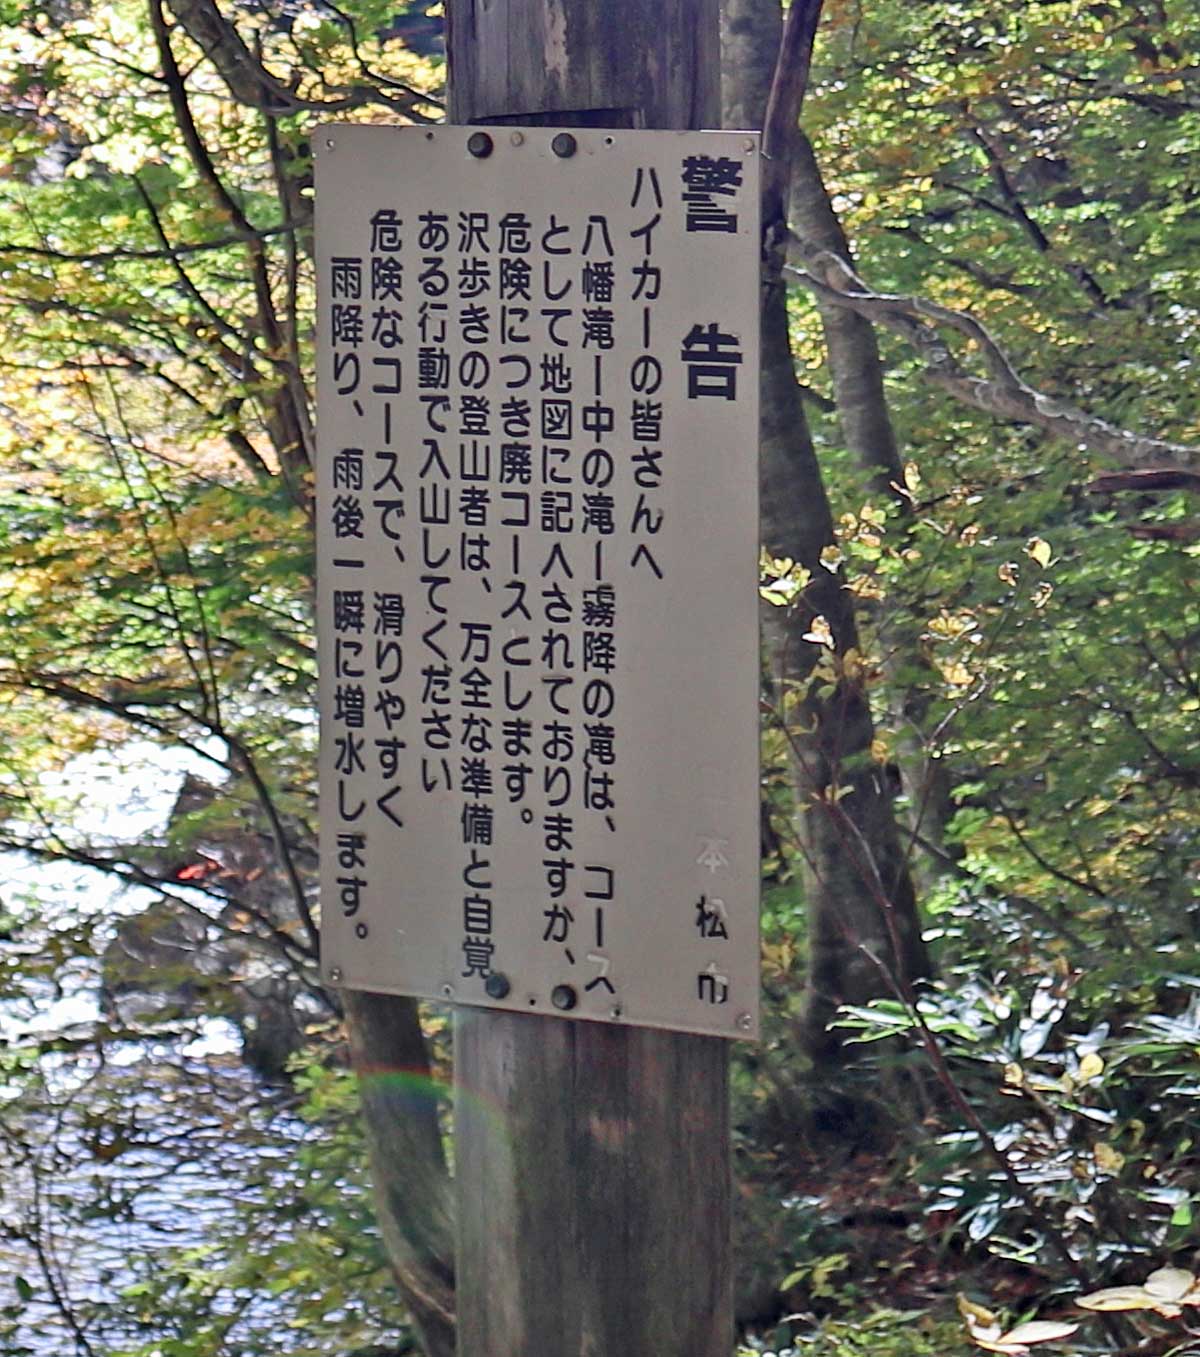 警告
本松市
ハイカーの皆さんへ
八幡滝ー中の滝ー霧降の滝は、コース
として地図に記入されておりますが、
危険につき廃コースとします。
沢歩きの登山者は、万全な準備と自覚
ある行動で入山してください
危険なコースで、滑りやすく
雨降り、雨後一瞬に増水します。